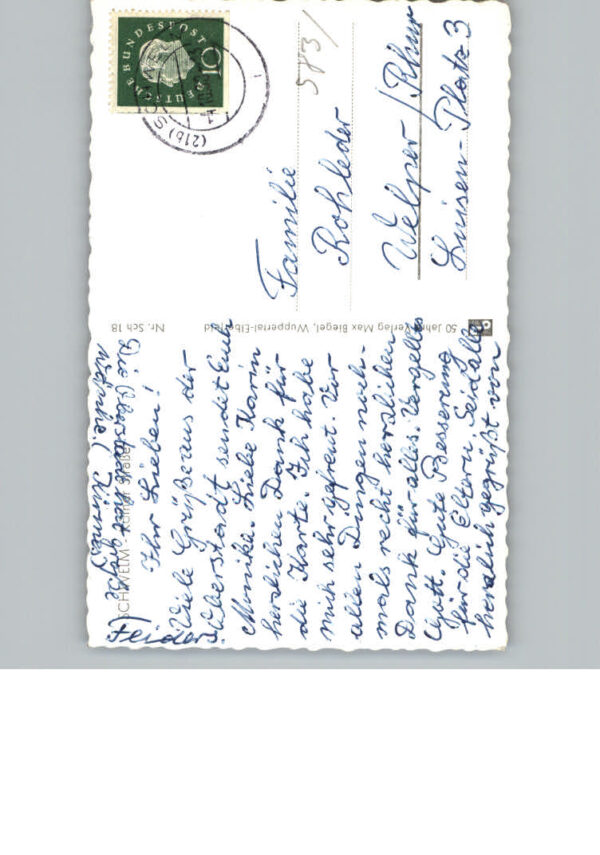 SCHWELM Kölner Straße
Die Oberstadt hat große
(Kirmes)
Ihr Lieben!
Viele Grüße aus der
Oberstadt sendet Euch
Monika. Liebe Karin
herzlichen Dank für
die Karte. Ich habe
mich sehr gefreut. Vor
allen Dingen noch-
mals recht herzlichen
Dank für alles. Vergelts
Gott. Gute Besserung
für die Eltern. Seid alle
herzlich gegrüßt von
Feiders.
Nr. Sch 18
50 Jahre Verlag Max Biegel, Wuppertal-Elberfeld
DEUTSCHE BUNDESPOST
10
(21b)
583/
Familie
Rohleder
Welper/Ruhr
Luisen-Platz 3